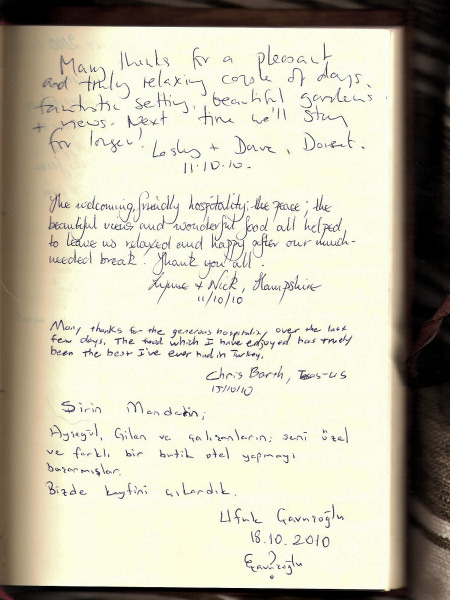 Many thanks for a pleasant
and truly relaxing couple of days.
fantastic setting, beautiful gardens
+ views. Next time we'll stay
for longer!
Lesley + Dave, Dorset.
11.10.10.
The welcoming, friendly hospitality; the peace; the
beautiful views and wonderful food all helped
to leave us relaxed and happy after our much-
needed break. Thank you all.
Lynne + Nick, Hampshire
11/10/10
Many thanks for the generous hospitality over the last
few days. The food which I have enjoyed has truely
been the best I've ever had in Turkey.
Chris Barth, US
15/10/10
Şirin Mandalin;
Ayşegül, Gilan ve çalışanların; seni özel
ve farklı bir butik otel yapmayı
başarmışlar.
Bizde keyfini çıkardık.
Ufuk
18.10.2010